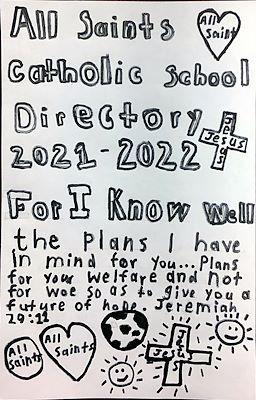 All Saints
All Saints
Catholic School
Directory
Jesus
Jesus
2021-2022
For I Know Well
the Plans I have
in mind for you... Plans
for your welfare and not
for woe so as to give you a
future of hope. Jeremiah
29:11
All Saints
All Saints
Jesus
Jesus